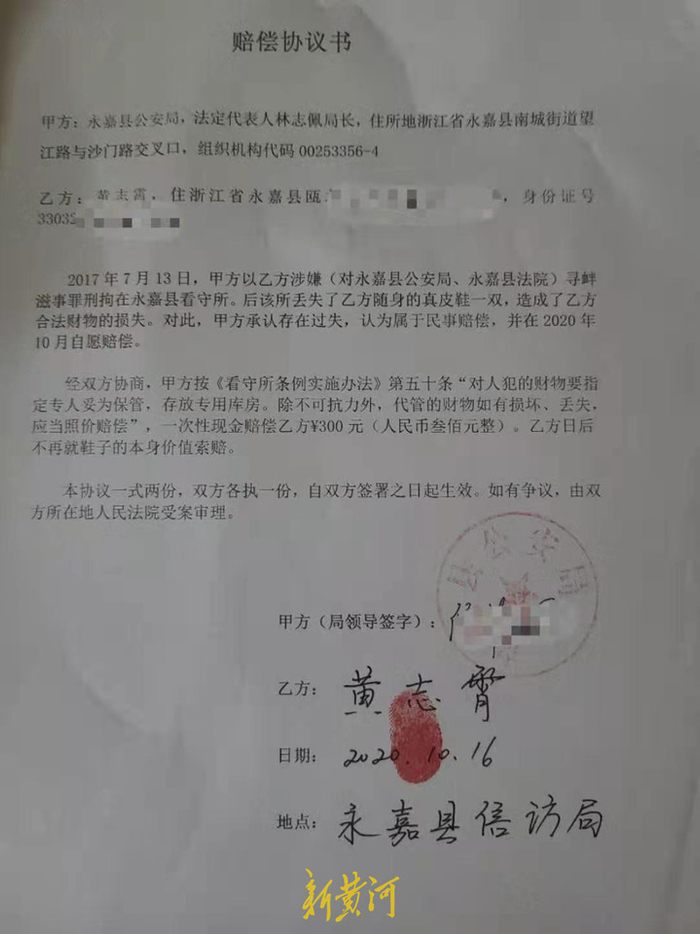 赔偿协议书
甲方：永嘉县公安局，法定代表人林志佩局长，住所地浙江省永嘉县南城街道望
江路与沙门路交叉口，组织机构代码 00253356-4
乙方：黄志霄，住浙江省永嘉县瓯，身份证号
33032
2017 年 7 月 13 日，甲方以乙方涉嫌（对永嘉县公安局、永嘉县法院）寻衅
滋事罪刑拘在永嘉县看守所。后该所丢失了乙方随身的真皮鞋一双，造成了乙方
合法财物的损失。对此，甲方承认存在过失，认为属于民事赔偿，并在 2020 年
10 月自愿赔偿。
经双方协商，甲方按《看守所条例实施办法》第五十条“对人犯的财物要指
定专人妥为保管，存放专用库房。除不可抗力外，代管的财物如有损坏、丢失，
应当照价赔偿”，一次性现金赔偿乙方¥300 元（人民币叁佰元整）。乙方日后
不再就鞋子的本身价值索赔。
本协议一式两份，双方各执一份，自双方签署之日起生效。如有争议，由双
方所在地人民法院受案审理。
县公安局
甲方（局领导签字）：
乙方：黄志霄
日期：2020.10.16
地点：永嘉县信访局
新黄河